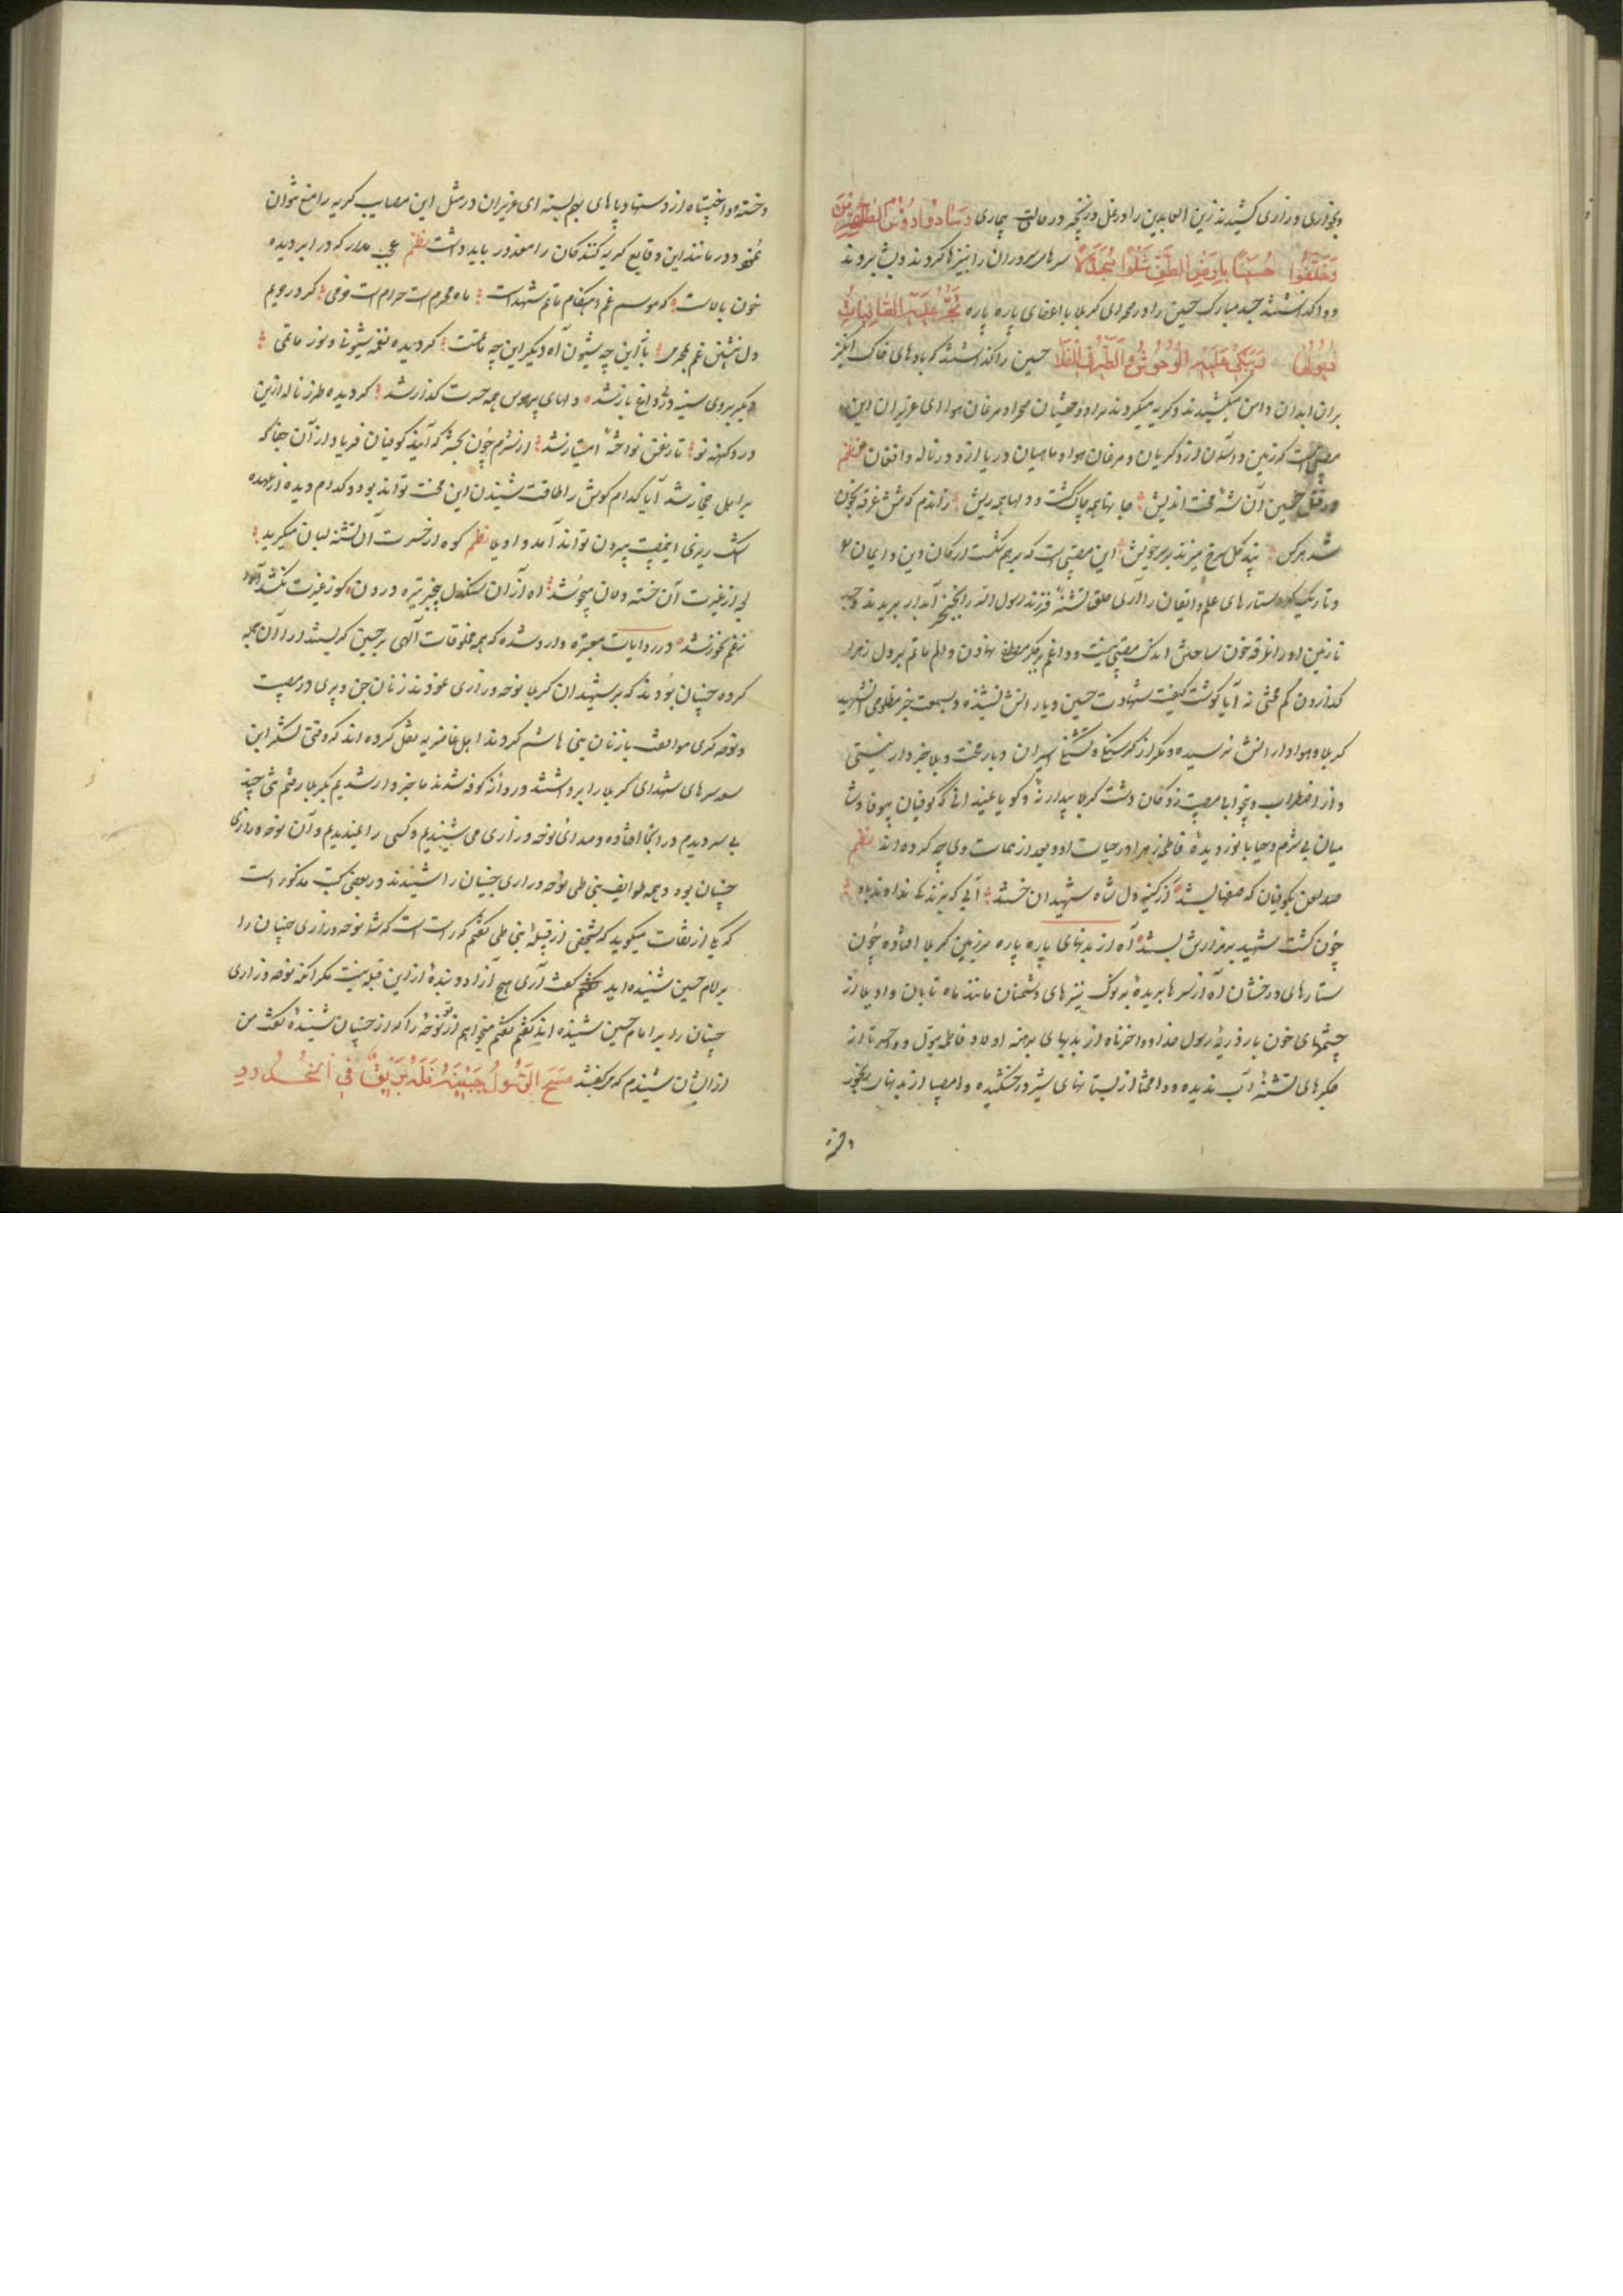 وبخواری و زاری کشیدند زین العابدین را در غل و زنجیر در حالت بیماری وَسَادُوا رُؤُسَ
وَخَلَّفُوا حُسَیْنًا بِاَرْضِ الطَّفِّ شِلْوًا مُجَدَّلًا سرهای سروران را بنیزها کردند و پیش بردند
و واگذاشتند جسد مبارک حسین را در صحرای کربلا با اعضای پاره پاره تَجُرُّ عَلَیْهِ
ذُیُولَهَا وَتَبْکِی عَلَیْهِ الْوُحُوشُ وَالطَّیْرُ فِی الْفَلَا حسین را گذاشتند که بادهای خاک انگیز
بر آن ابدان دامن میکشیدند و گریه میکردند بر او وحشیان صحرا و مرغان هوا ای عزیزان این
مصیبتی است که زمین و آسمان از و گریان و مرغان هوا و ماهیان دریا از و در ناله و افغان نظم
در قتل حسین آن شه محنت اندیش جانها همه چاک گشت و دلها همه ریش زاندم که تنش غرقه بخون
شد هر کس بیند گل سرخ میزند بر سر خویش این مصیبتی است که برهم شکست ارکان دین و ایمان
و تاریک کرد ستارهای علم و ایقان را آری حلق تشنه فرزند رسول الله را بخنجر آبدار بریدند و جسد
نازنین او را غرقه خون ساختن اندک مصیبتی نیست و داغ بر جگر مصطفی نهادن و الم ماتم بر دل زهرا
گذاردن کم محنتی نه آیا گوشت کیفیت شهادت حسین و یارانش نشنیده و بسمعت خبر مظلومی
کربلا و هوادارانش نرسیده و مگر از گرسنگی و تشنگی اسیران و بار محنت و بلا خبردار نیستی
و از اضطراب و بیخوابی مصیبت زدگان دشت کربلا بیدار نه و گویا نمیدانی که کوفیان بیوفا و شا
میان بی شرم و حیا با نور دیده فاطمه زهرا در حیات او و بعد از ممات وی چه کرده اند نظم
صد لعن بکوفیان که صفها بستند از کینه دل شاه شهیدان خستند آبی که بزندگی ندادند باو
چون گشت شهید بر مزارش بستند آه از بدنهای پاره پاره بر زمین کربلا افتاده چون
ستارهای درخشان آه از سرهای بریده بر نوک نیزهای دشمنان مانند ماه تابان واویلا از
چشمهای خون بار ذریه رسول خدا و واحزناه از بدنهای برهنه اولاد فاطمه بتول و وحسرتا از
جگرهای تشنه آب ندیده و وامحنتا از پستانهای شیر در خشکیده وامصیبتا از بدنهای
وخسته و واخیبتاه از دستها و پاهای بهم بسته ای عزیزان در مثل این مصایب گریه را منع نتوان
نمود و در مانند این وقایع گریه کنندگان را معذور باید داشت نظم عجب مدار که در ابر دیده
خون بالاست که موسم غم و هنگام ماتم شهداست ماه محرم است حرام است خرمی کردر جیم
دل نشین غم محرم باز این چه شیون آه دیگر این چه ماتمست گردیده نغمه شیون و نوز ماتمی
دیگر بروی سینه در داغ باز شد دلهای پر هوس همه حسرت گذار شد گردیده طرز ناله ازین
درد کهنه نو تا رفتن نواخته امتیاز شد از شرم چون بحشر که آیند کوفیان فریاد از آن جفا که
بر اهل حجاز شد آیا کدام گوش را طاقت شنیدن این محنت تواند بود و کدام دیده از عهده
اشک ریزی این مصیبت بیرون تواند آمد واویلا نظم کوه از حسرت آن تشنه لبان میگرید
لب از غیرت آن خسته دلان میجوشد آه از آن سنگدل بیخبر تیره درون کوز غیرت نکشد آه و
ز غم نخروشد در روایات معتبره وارد شده که همه مخلوقات الهی بر حسین گریستند از آن جمله
کرده جنیان بودند که بر شهیدان کربلا نوحه و زاری نمودند زنان جن و پری در مصیبت
و نوحه گری موافقت با زنان بنی هاشم کردند اهل غاضریه نقل کرده اند که وقتی لشکر ابن
سعد سرهای شهدای کربلا را برداشتند و روانه کوفه شدند ما خبردار شدیم بکربلا رفتیم تنی چند
بی سر دیدیم در آنجا افتاده و صدای نوحه و زاری می شنیدیم و کسی را نمیدیدیم و آن نوحه و زاری
جنیان بود و همه طوایف بنی طی نوحه و زاری جنیان را شنیدند و در بعضی کتب مذکور است
که یکی از ثقات میگوید که بشخصی از قبیله بنی طی گفتم که راست است که شما نوحه و زاری جنیان را
بر امام حسین شنیده اید گفت آری هیچ آزاد و بنده از این قبیله نیست مگر آنکه نوحه و زاری
جنیان را بر امام حسین شنیده اند گفتم میخواهم از تو نوحه را که از جنیان شنیده گفت من
از ایشان شنیدم که میگفتند مَسَحَ الرَّسُولُ جَبِینَهُ فَلَهُ بَرِیقٌ فِی الْخُدُودِ